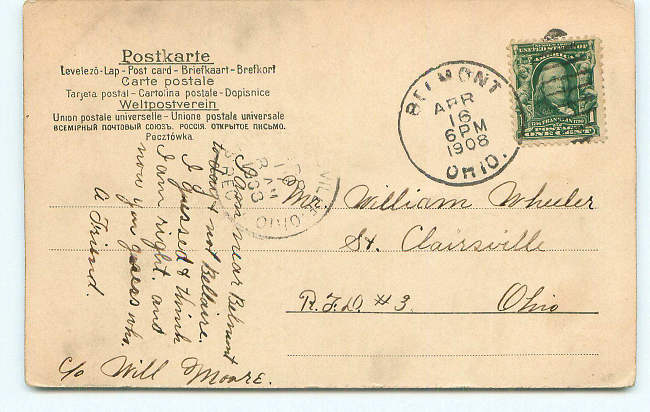 Postkarte
Levelező-Lap - Post card - Briefkaart - Brefkort
Carte postale
Tarjeta postal - Cartolina postale - Dopisnice
Weltpostverein
Union postale universelle - Unione postale universale
ВСЕМІРНЫЙ ПОЧТОВЫЙ СОЮЗЪ. РОССІЯ. ОТКРЫТОЕ ПИСЬМО.
Pocztówka
BELMONT
APR
16
6PM
1908
OHIO.
UNITED STATES OF
AMERICA
POSTAGE
1 ONE CENT 1
VILLE, OHIO
Mr. William Wheeler
St. Clairsville
R.F.D. #3. Ohio
near Belmont
and not Bellaire.
I guessed & think
I am right. and
now you guess who,
A Friend.
c/o Will Moore.